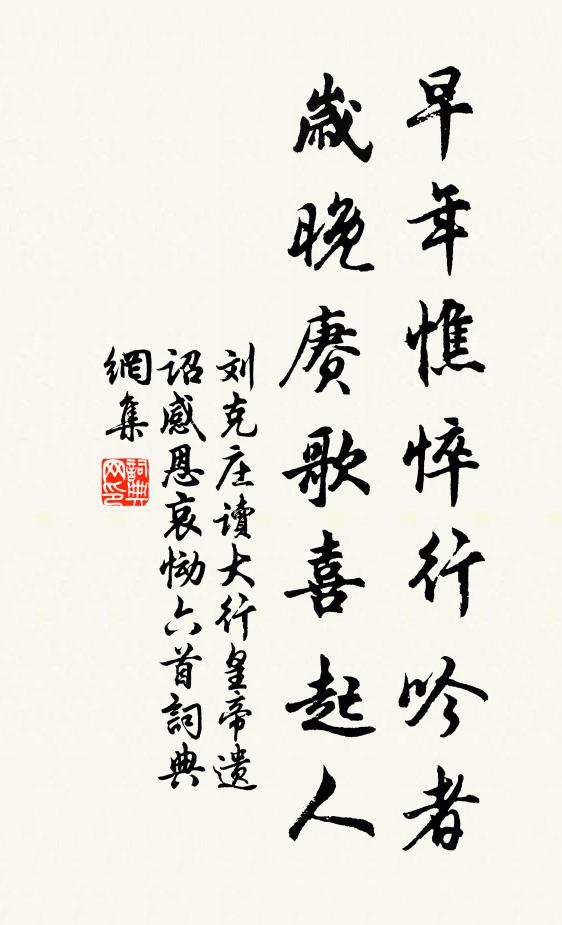 早年憔悴行吟者
歲晚赓歌喜起人
刘克庄讀大行皇帝遗
詔感恩哀恸六首詞典
網集
詞典网印